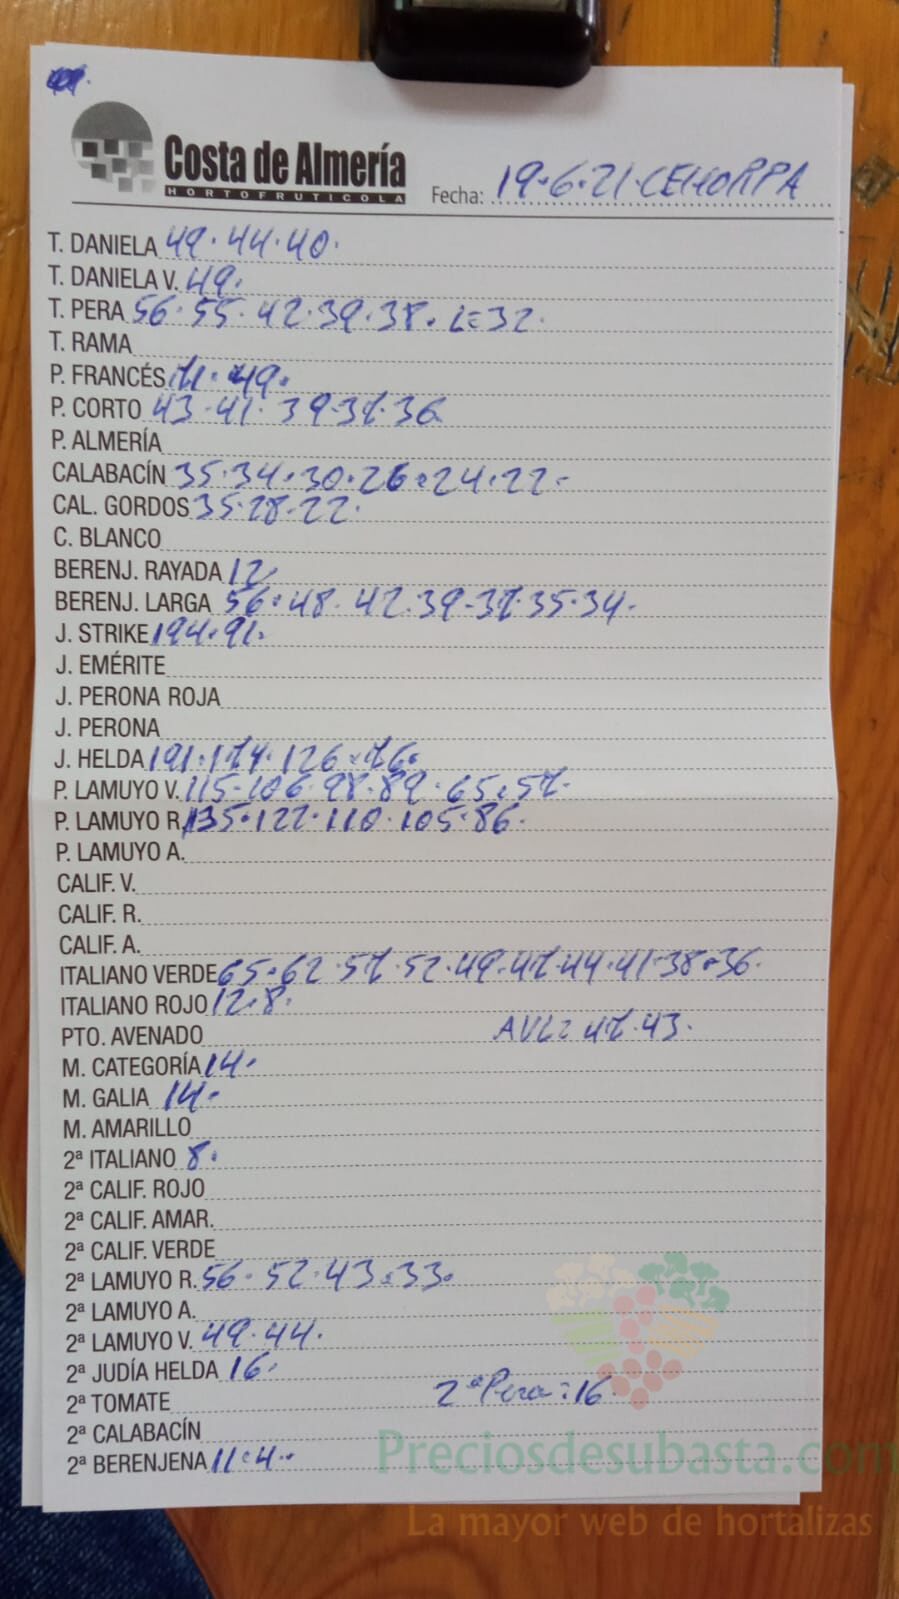 Costa de Almería
HORTOFRUTICOLA
Fecha: 19.6.21.CEHORPA
T. DANIELA 49.44.40.
T. DANIELA V. 49.
T. PERA 56.55.42.39.38. L=32.
T. RAMA
P. FRANCÉS 71.49.
P. CORTO 43.41.39.37.36
P. ALMERÍA
CALABACÍN 35.34.30.26.24.22.
CAL. GORDOS 35.28.22.
C. BLANCO
BERENJ. RAYADA 12
BERENJ. LARGA 56.48.42.39.37.35.34.
J. STRIKE 194.91.
J. EMÉRITE
J. PERONA ROJA
J. PERONA
J. HELDA 191.174.126.76.
P. LAMUYO V. 115.106.98.89.65.57.
P. LAMUYO R. 135.122.110.105.86.
P. LAMUYO A.
CALIF. V.
CALIF. R.
CALIF. A.
ITALIANO VERDE 65.62.57.52.49.47.44.41.38.36.
ITALIANO ROJO 12.8.
PTO. AVENADO AVL= 47.43.
M. CATEGORÍA 14.
M. GALIA 14.
M. AMARILLO
2ª ITALIANO 8.
2ª CALIF. ROJO
2ª CALIF. AMAR.
2ª CALIF. VERDE
2ª LAMUYO R. 56.52.43.33.
2ª LAMUYO A.
2ª LAMUYO V. 49.44.
2ª JUDÍA HELDA 16.
2ª TOMATE 2ª Pera=16
2ª CALABACÍN
2ª BERENJENA 11.4.
Preciosdesubasta.com
La mayor web de hortalizas